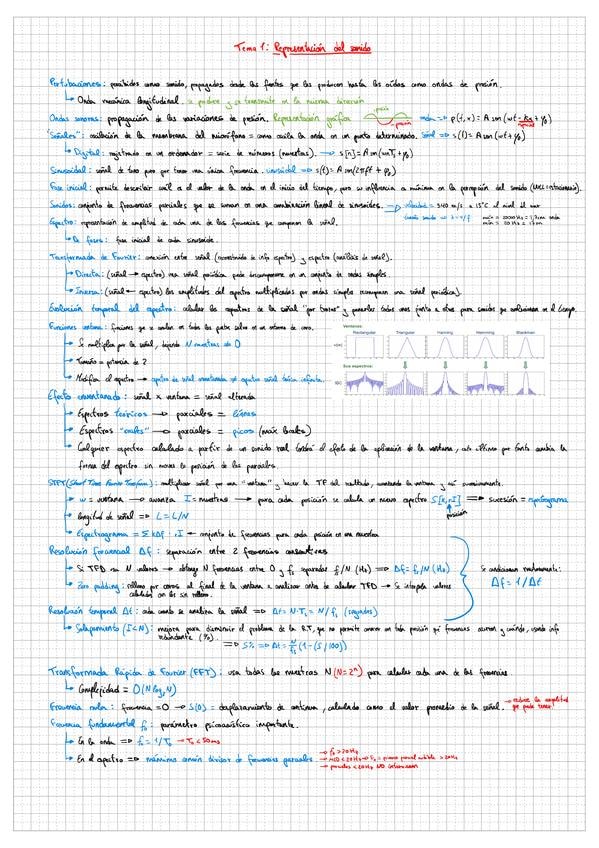 Tema 1: Representación del sonido
Perturbaciones: percibidas como sonido, propagadas desde las fuentes que las producen hasta los oídos como ondas de presión.
Onda mecánica longitudinal. se produce y se transmite en la misma dirección
Ondas sonoras: propagación de las variaciones de presión. Representación gráfica
+presión
-presión
onda => p(t,x) = A sen(wt - kx + φ0)
"Señales": oscilación de la membrana del micrófono = como oscila la onda en un punto determinado. Señal => s(t) = A sen(wt + φ0)
Digital: registrado en un ordenador = serie de números (muestras). => s[n] = A sen(wnTs + φ0)
Sinusoidal: señal de tono puro por tener una única frecuencia. sinusoidal => s(t) = A sen(2πft + φ0)
Fase inicial: permite describir cuál es el valor de la onda en el inicio del tiempo, pero su influencia es mínima en la percepción del sonido
Sonidos: conjunto de frecuencias parciales que se suman en una combinación lineal de sinusoides.
velocidad = 340 m/s a 15°C al nivel del mar
Espectro: representación de amplitud de cada una de las frecuencias que componen la señal.
De fases: fase inicial de cada sinusoide.
Transformada de Fourier: conexión entre señal (reconstruido de info espectro) y espectro (análisis de señal).
Directa: (señal → espectro) una señal periódica puede descomponerse en un conjunto de ondas simples.
Inversa: (señal ← espectro) las amplitudes del espectro multiplicadas por ondas simples recomponen una señal periódica.
Evolución temporal del espectro: calcular los espectros de la señal "por trozos" y ponerlos todos unos junto a otros para sonidos que evolucionan en el tiempo.
Funciones ventana: funciones que se anulan en todas las partes salvo en un entorno de cero.
Se multiplica por la señal, dejando N muestras ≠ 0
Tamaño = potencia de 2
Modifica el espectro → espectro de señal enventanada ≠ espectro señal teórica infinita.
Ventanas:
Rectangular Triangular Hanning Hamming Blackman
Sus espectros:
Efecto enventanado: señal x ventana = señal alterada
Espectros teóricos → parciales = líneas
Espectros "reales" → parciales = picos (máx locales)
Cualquier espectro calculado a partir de un sonido real tendrá el efecto de la aplicación de la ventana, este último por tanto cambia la
forma del espectro sin mover la posición de los parciales.
STFT (Short Time Fourier Transform): multiplicar señal por una "ventana" y hacer la TF del resultado, avanzando la ventana y así sucesivamente.
w = ventana → avanza I = muestras → para cada posición se calcula un nuevo espectro S[k,nI] => sucesión = espectrograma
posición
longitud de señal => L = L/N
Espectrograma = Σ kΔf · rI ← conjunto de frecuencias para cada posición en una muestra
Resolución frecuencial Δf: separación entre 2 frecuencias consecutivas
Si TFD da N valores → obtengo N frecuencias entre 0 y fs separadas fs/N (Hz) => Δf = fs/N (Hz)
Zero padding: relleno por ceros al final de la ventana a analizar antes de calcular TFD → Se interpola valores
calculados con los sin relleno.
Se condicionan mutuamente:
Δf = 1/Δt
Resolución temporal Δt: cada cuanto se analiza la señal => Δt = N·Ts = N/fs (segundos)
Solapamiento (I<N): mejora para disminuir el problema de la R.T, que no permite conocer en toda posición qué frecuencias ocurren y cuándo, usando info
redundante (%).
=> S% => Δt = N/fs (1-(S/100))
Transformada Rápida de Fourier (FFT): usa todas las muestras N (N=2ⁿ) para calcular cada una de las frecuencias.
Complejidad = O(N log2 N)
Frecuencia nula: frecuencia = 0 → S(0) = desplazamiento de continua, calculado como el valor promedio de la señal.
→ reduce la amplitud
que puede tener
Frecuencia fundamental f0: parámetro psicoacústico importante.
En la onda => f0 = 1/T0 → T0 < 50ms
En el espectro => máximo común divisor de frecuencias parciales
→ f0 > 20Hz
→ MCD < 20Hz → f0 = primer parcial audible > 20Hz
→ parciales < 20Hz NO interesan